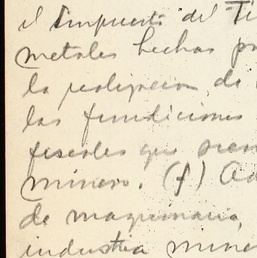 el Impuesto del Ti
metales hechas p
la realizacion de
las fundiciones
fiscales que sean
minero. (f) Ad
de maquinaria,
industria mine